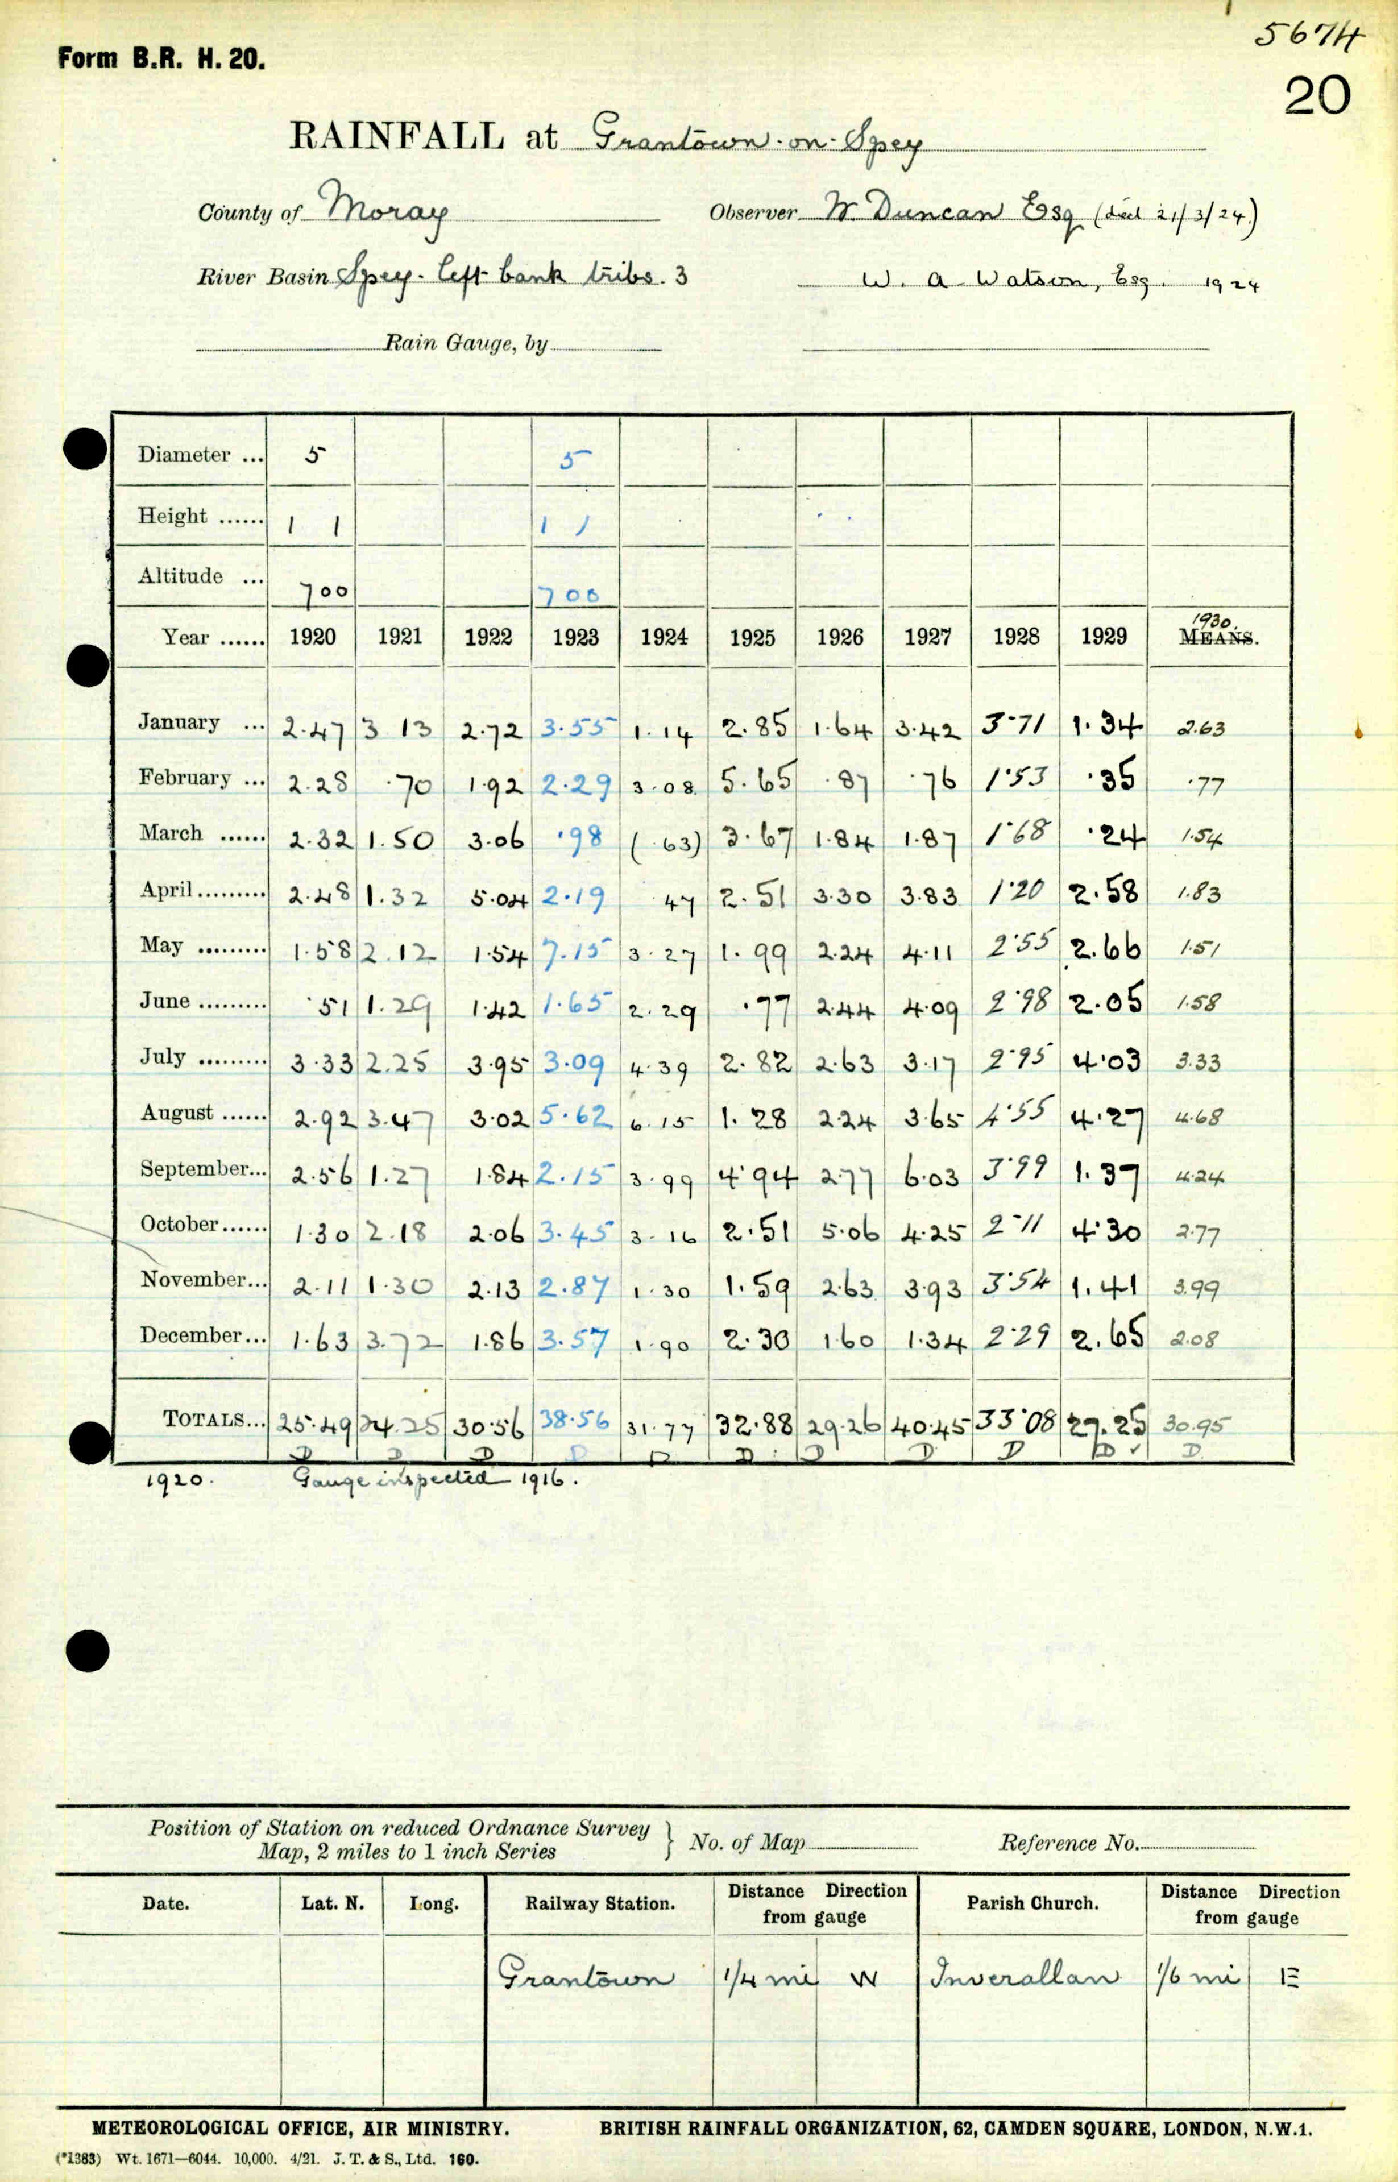 5674
Form B.R. H. 20.
20
RAINFALL at Grantown-on-Spey
County of Moray Observer W. Duncan Esq (died 21/3/24)
River Basin Spey - left bank tribs. 3 W. A. Watson, Esq. 1924
Rain Gauge, by
Diameter ... 5 5
Height ...... 1 1 1 1
Altitude ... 700 700
1930.
Year ...... 1920 1921 1922 1923 1924 1925 1926 1927 1928 1929 MEANS.
January ... 2.47 3 13 2.72 3.55 1.14 2.85 1.64 3.42 3.71 1.34 2.63
February ... 2.28 .70 1.92 2.29 3.08 5.65 .87 .76 1.53 .35 .77
March ...... 2.32 1.50 3.06 .98 (.63) 3.67 1.84 1.87 1.68 .24 1.54
April ......... 2.48 1.32 5.04 2.19 47 2.51 3.30 3.83 1.20 2.58 1.83
May ......... 1.58 2.12 1.54 7.15 3.27 1.99 2.24 4.11 2.55 2.66 1.51
June ......... .51 1.29 1.42 1.65 2.29 .77 2.44 4.09 2.98 2.05 1.58
July ......... 3.33 2.25 3.95 3.09 4.39 2.82 2.63 3.17 2.95 4.03 3.33
August ...... 2.92 3.47 3.02 5.62 6.15 1.28 2.24 3.65 4.55 4.27 4.68
September... 2.56 1.27 1.84 2.15 3.99 4.94 2.77 6.03 3.99 1.37 4.24
October...... 1.30 2.18 2.06 3.45 3.16 2.51 5.06 4.25 2.11 4.30 2.77
November... 2.11 1.30 2.13 2.87 1.30 1.59 2.63 3.93 3.54 1.41 3.99
December... 1.63 3.72 1.86 3.57 1.90 2.30 1.60 1.34 2.29 2.65 2.08
TOTALS... 25.49 24.25 30.56 38.56 31.77 32.88 29.26 40.45 33.08 27.25 30.95
D D D D D D D D D D ✓ D
1920. Gauge inspected 1916.
Position of Station on reduced Ordnance Survey
Map, 2 miles to 1 inch Series } No. of Map Reference No.
Date. Lat. N. Long. Railway Station. Distance Direction from gauge Parish Church. Distance Direction from gauge
Grantown 1/4 mi W Inverallan 1/6 mi E
METEOROLOGICAL OFFICE, AIR MINISTRY. BRITISH RAINFALL ORGANIZATION, 62, CAMDEN SQUARE, LONDON, N.W.1.
(*1383) Wt. 1671—6044. 10,000. 4/21. J. T. & S., Ltd. 160.